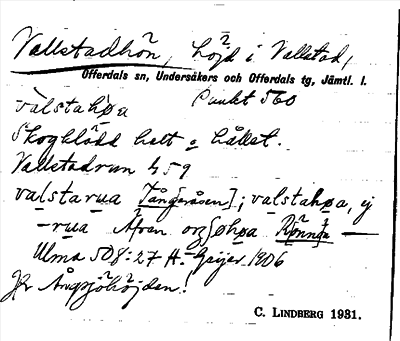 Vallstadhön, höjd i Vallstad,
Offerdals sn, Undersåkers och Offerdals tg, Jämtl. l.
Punkt 560
valstahøa
Skogklädd helt o hållet.
Vallstadrun 459
valstarua Tångeråsen]; valstahøa, ej
-rua Även
Rönnån —
Ulma 508:27 H. Geijer 1906
Jfr Ångsjöhöjden!
C. LINDBERG 1931.